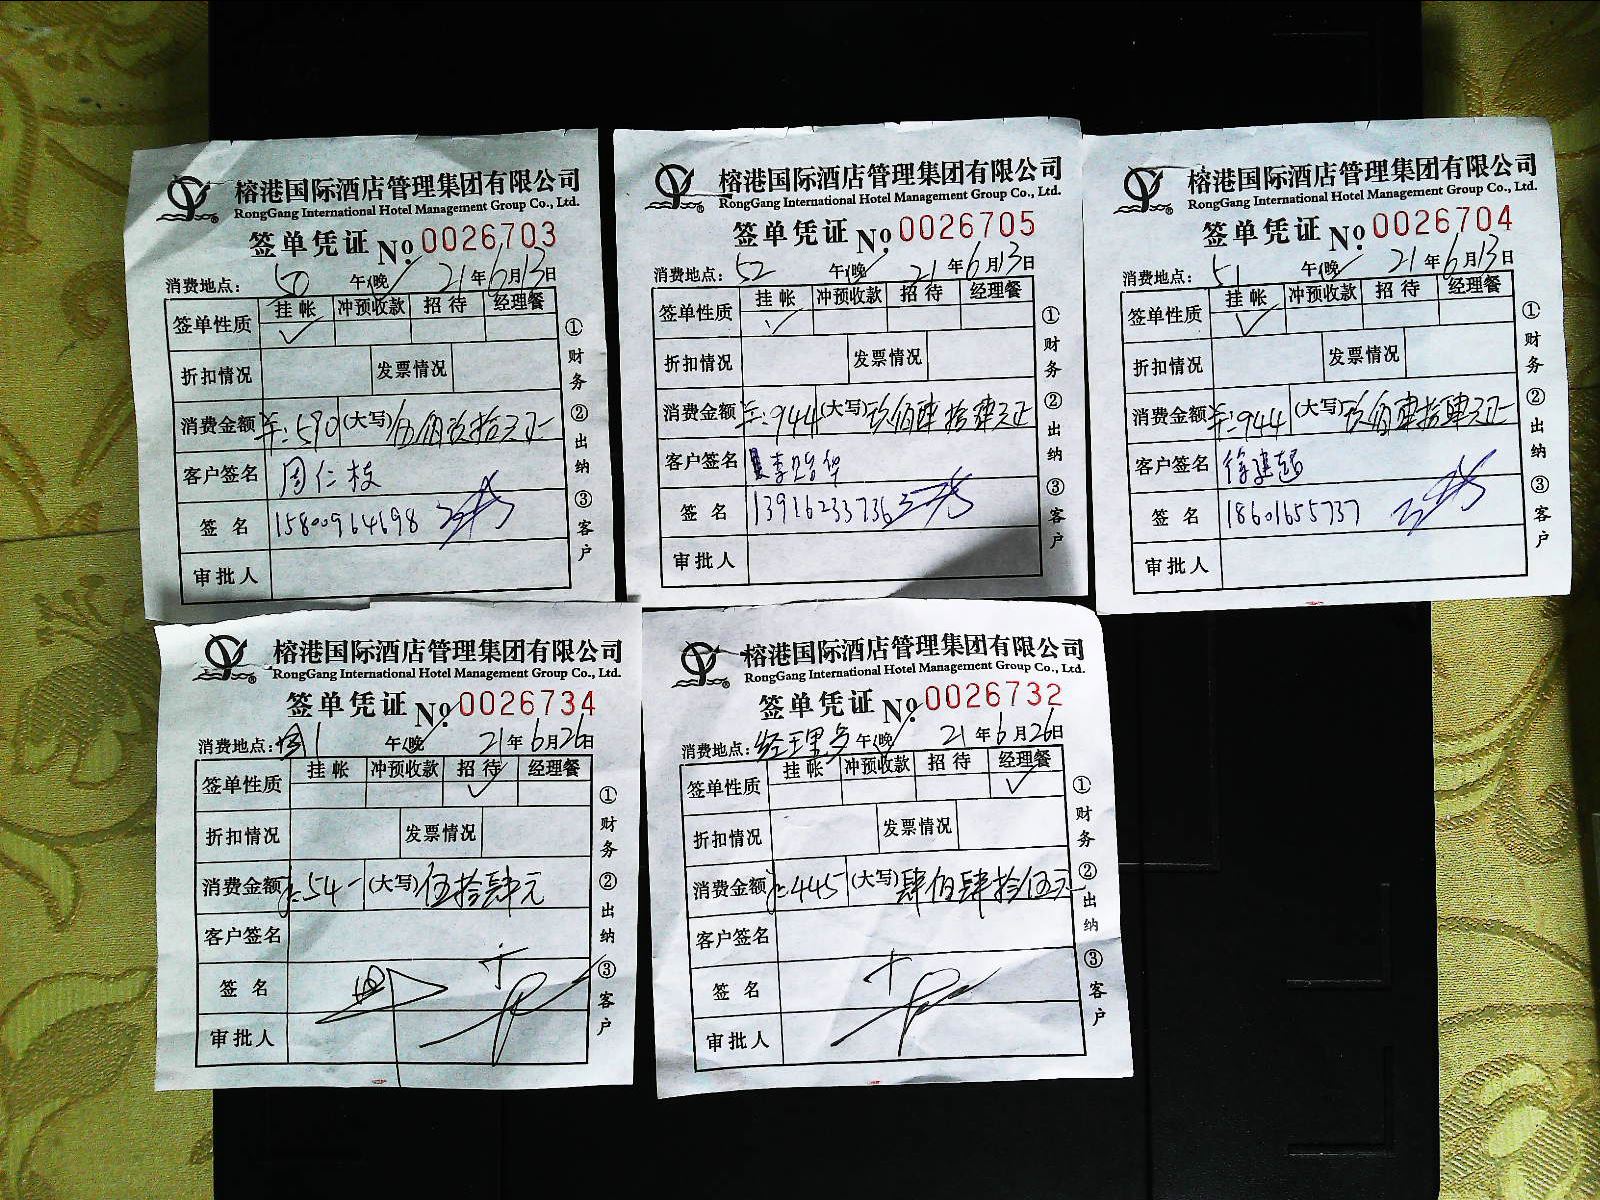 榕港国际酒店管理集团有限公司
RongGang International Hotel Management Group Co., Ltd.
签单凭证 No. 0026703
消费地点: 50 午/晚 21年6月13日
签单性质 挂帐 冲预收款 招待 经理餐
✓
折扣情况 发票情况
消费金额 ¥:590 (大写) 伍佰玖拾元正
客户签名 周仁枝
签名 15800964698
审批人
①财务 ②出纳 ③客户
榕港国际酒店管理集团有限公司
RongGang International Hotel Management Group Co., Ltd.
签单凭证 No. 0026705
消费地点: 52 午/晚 21年6月13日
签单性质 挂帐 冲预收款 招待 经理餐
✓
折扣情况 发票情况
消费金额 ¥:944 (大写) 玖佰肆拾肆元正
客户签名 李
签名 13916233736
审批人
①财务 ②出纳 ③客户
榕港国际酒店管理集团有限公司
RongGang International Hotel Management Group Co., Ltd.
签单凭证 No. 0026704
消费地点: 51 午/晚 21年6月13日
签单性质 挂帐 冲预收款 招待 经理餐
✓
折扣情况 发票情况
消费金额 ¥:944 (大写) 玖佰肆拾肆元正
客户签名 徐建超
签名 18601655737
审批人
①财务 ②出纳 ③客户
榕港国际酒店管理集团有限公司
RongGang International Hotel Management Group Co., Ltd.
签单凭证 No. 0026734
消费地点: 1 午/晚 21年6月26日
签单性质 挂帐 冲预收款 招待 经理餐
✓
折扣情况 发票情况
消费金额 ¥:54- (大写) 伍拾肆元
客户签名
签名
审批人
①财务 ②出纳 ③客户
榕港国际酒店管理集团有限公司
RongGang International Hotel Management Group Co., Ltd.
签单凭证 No. 0026732
消费地点: 经理 午/晚 21年6月26日
签单性质 挂帐 冲预收款 招待 经理餐
✓
折扣情况 发票情况
消费金额 ¥:445 (大写) 肆佰肆拾伍元
客户签名
签名
审批人
①财务 ②出纳 ③客户